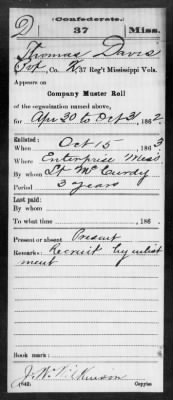 Confederate.
D 37 Miss.
Thomas Davis
Pvt, Co. K, 37 Reg't Mississippi Vols.
Appears on
Company Muster Roll
of the organization named above,
for Apr 30 to Oct 31, 1862.
Enlisted:
When Oct 15, 1863
Where Enterprise Miss
By whom Lt McCurdy
Period 3 years
Last paid:
By whom
To what time , 186 .
Present or absent Present
Remarks: Recruit by enlist
ment
Book mark:
J. W. Wilkinson
(642) Copyist.